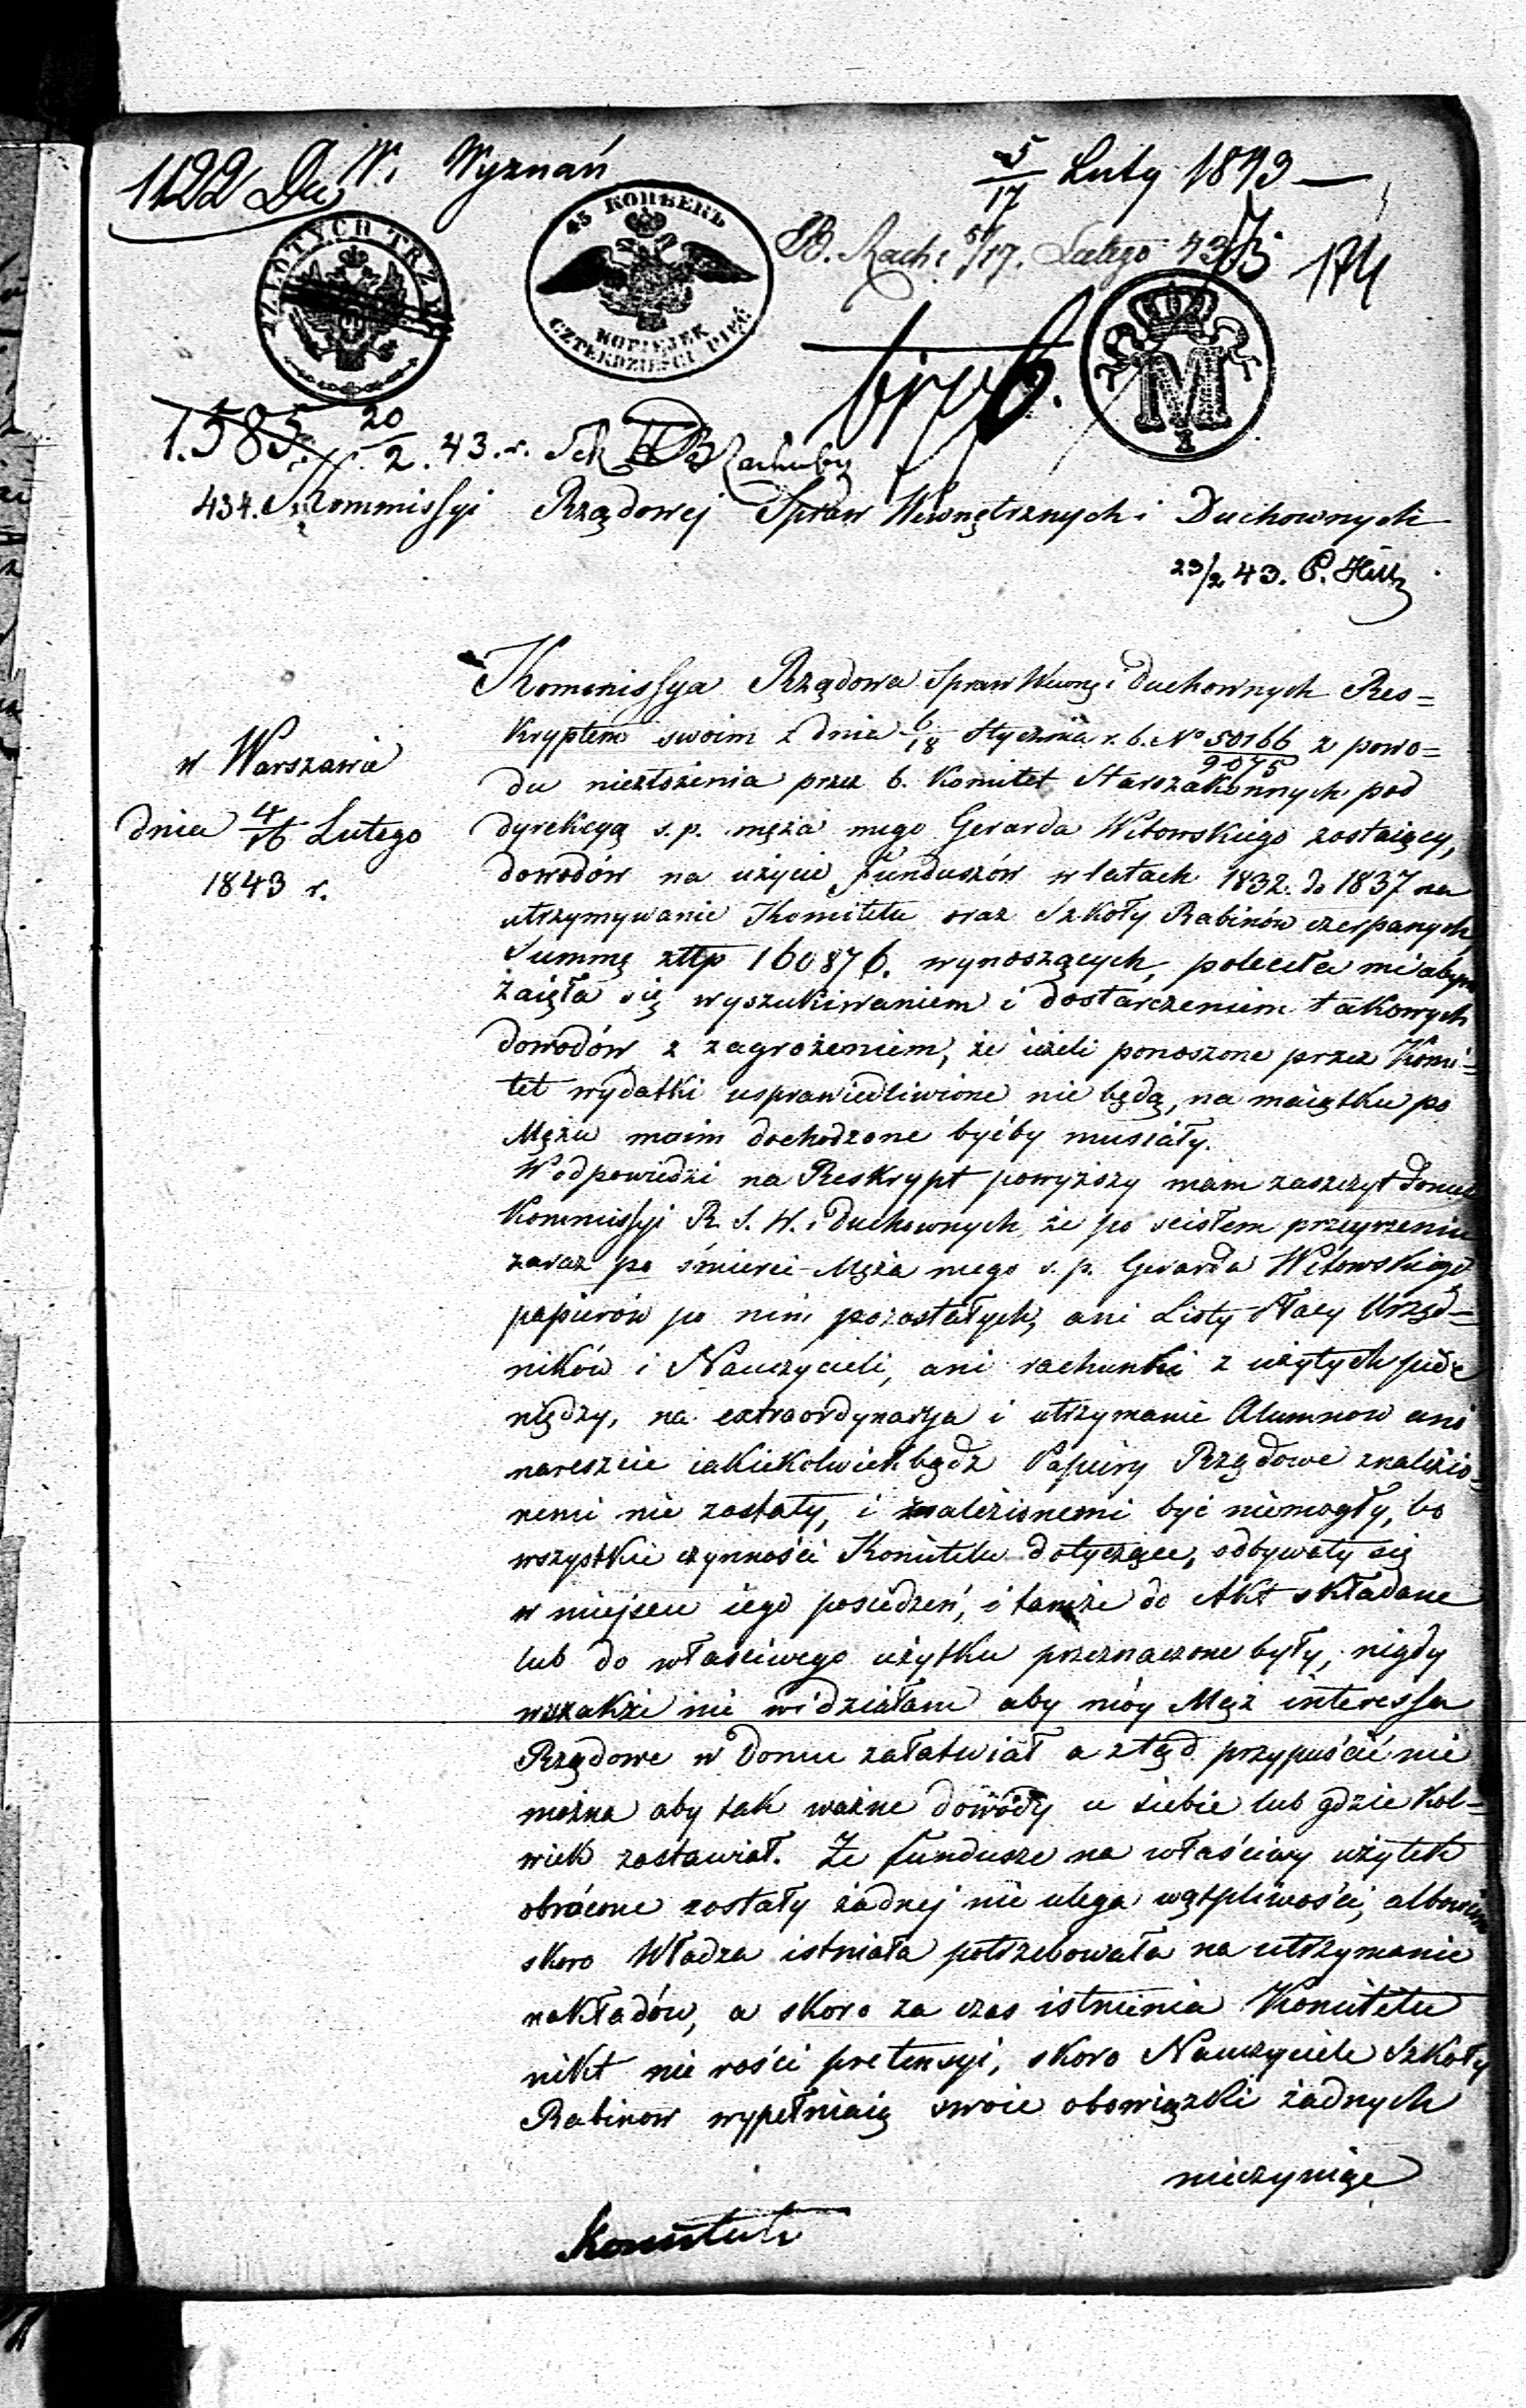 1122 Du W. Wyznań
5/17 Luty 1843
B. Rach: 5/17. Lutego 43
174
ZŁOTYCH TRZY
45 КОПѢЕКЪ
KOPIEJEK
CZTERDZIEŚCI PIĘĆ
M
1.585. 20/2. 43. r. Sek
434. Kommissyi Rządowej Spraw Wewnętrznych i Duchownych
23/2 43.
w Warszawie
dnia 4/16 Lutego
1843 r.
Kommissya Rządowa Spraw Wewnę i Duchownych Res=
kryptem swoim z dnia 6/18 Stycznia r. b. No 50166/9075 z powo=
du niezłożenia przez b. Komitet Starozakonnych pod
dyrekcyą s. p. męża mego Gerarda Witowskiego zostaiący,
dowodów na użycie Funduszów w latach 1832. do 1837 na
utrzymywanie Komitetu oraz Szkoły Rabinów czerpanych
Summę złtp 160876. wynoszących, poleciła mi abym
zaięła się wyszukiwaniem i dostarczeniem takowych
dowodów z zagrożeniem, że ieżeli ponoszone przez Komi=
tet wydatki usprawiedliwione nie będą, na maiątku po
Mężu moim dochodzone byćby musiały.
W odpowiedzi na Reskrypt powyższy mam zaszczyt donieść
Kommissyi R. S. W. i Duchownych, że po scisłem przeyrzeniu
zaraz po śmierci Męża mego s. p. Gerarda Witowskiego
papierów po nim pozostałych, ani Listy Płacy Urzęd=
ników i Nauczycieli, ani rachunki z użytych pie
niędzy, na extraordynarya i utrzymanie Alumnow ani
nareszcie iakiekolwiekbądz Papiery Rządowe znalezio=
nemi nie zostały, i znalezionemi być niemogły, bo
wszystkie czynności Komitetu dotyczące, odbywały się
w miejscu iego posiedzeń, i tamże do Akt składane
lub do właściwego użytku przeznaczone były, nigdy
wszakże nie widziałam aby móy Mąż interessa
Rządowe w Domu załatwiał a ztąd przypuścić nie
można aby tak ważne dowody u siebie lub gdzie kol=
wiek zostawiał. Że fundusze na właściwy użytek
obrócone zostały żadnej nie ulega wątpliwości, albowiem
skoro Władza istniała potrzebowała na utrzymanie
nakładów, a skoro za czas istnienia Komitetu
nikt nie rości pretensyi, skoro Nauczyciele Szkoły
Rabinow wypełniaią swoie obowiązki żadnych
nieczyniąc